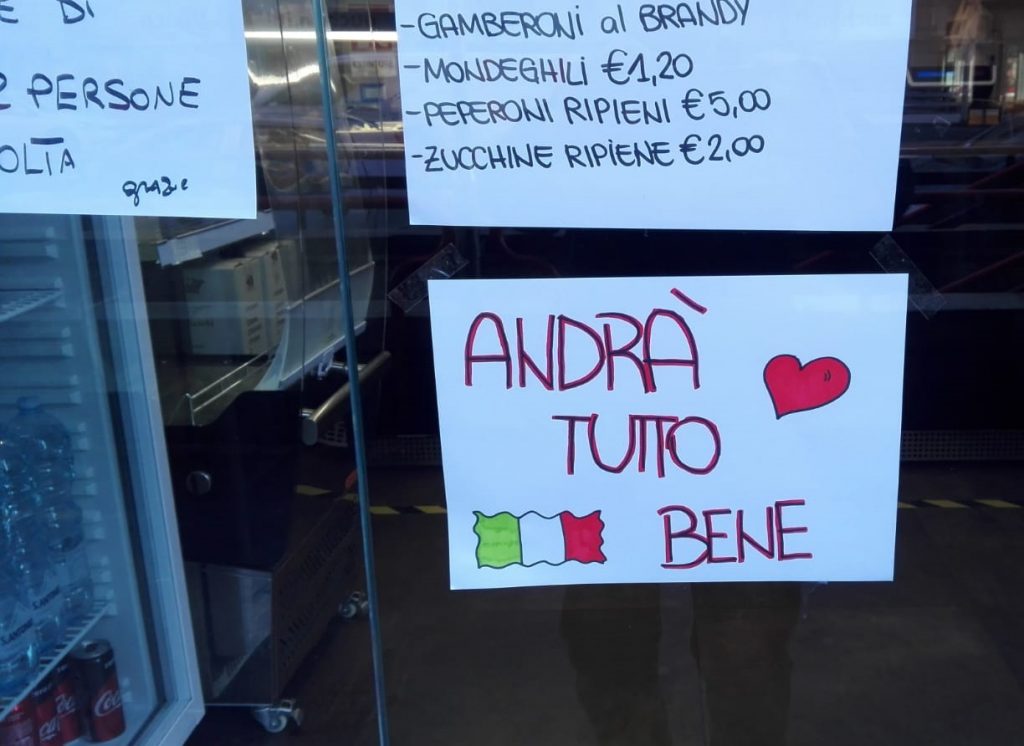 E DI
2 PERSONE
OLTA
grazie
-GAMBERONI al BRANDY
-MONDEGHILI €1,20
-PEPERONI RIPIENI €5,00
-ZUCCHINE RIPIENE €2,00
ANDRÀ
TUTTO
BENE